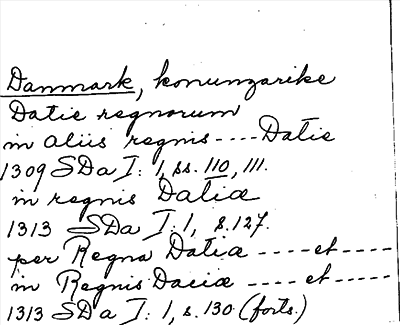 Danmark, konungarike
Datie regnorum
in aliis regnis ---- Datie
1309 SDa I: 1, ss. 110, 111.
in regnis Datiæ
1313 SDa I: 1, s. 127.
per Regna Datiæ ---- et ----
in Regnis Daciæ ---- et ----
1313 SDa I: 1, s. 130 (forts.)